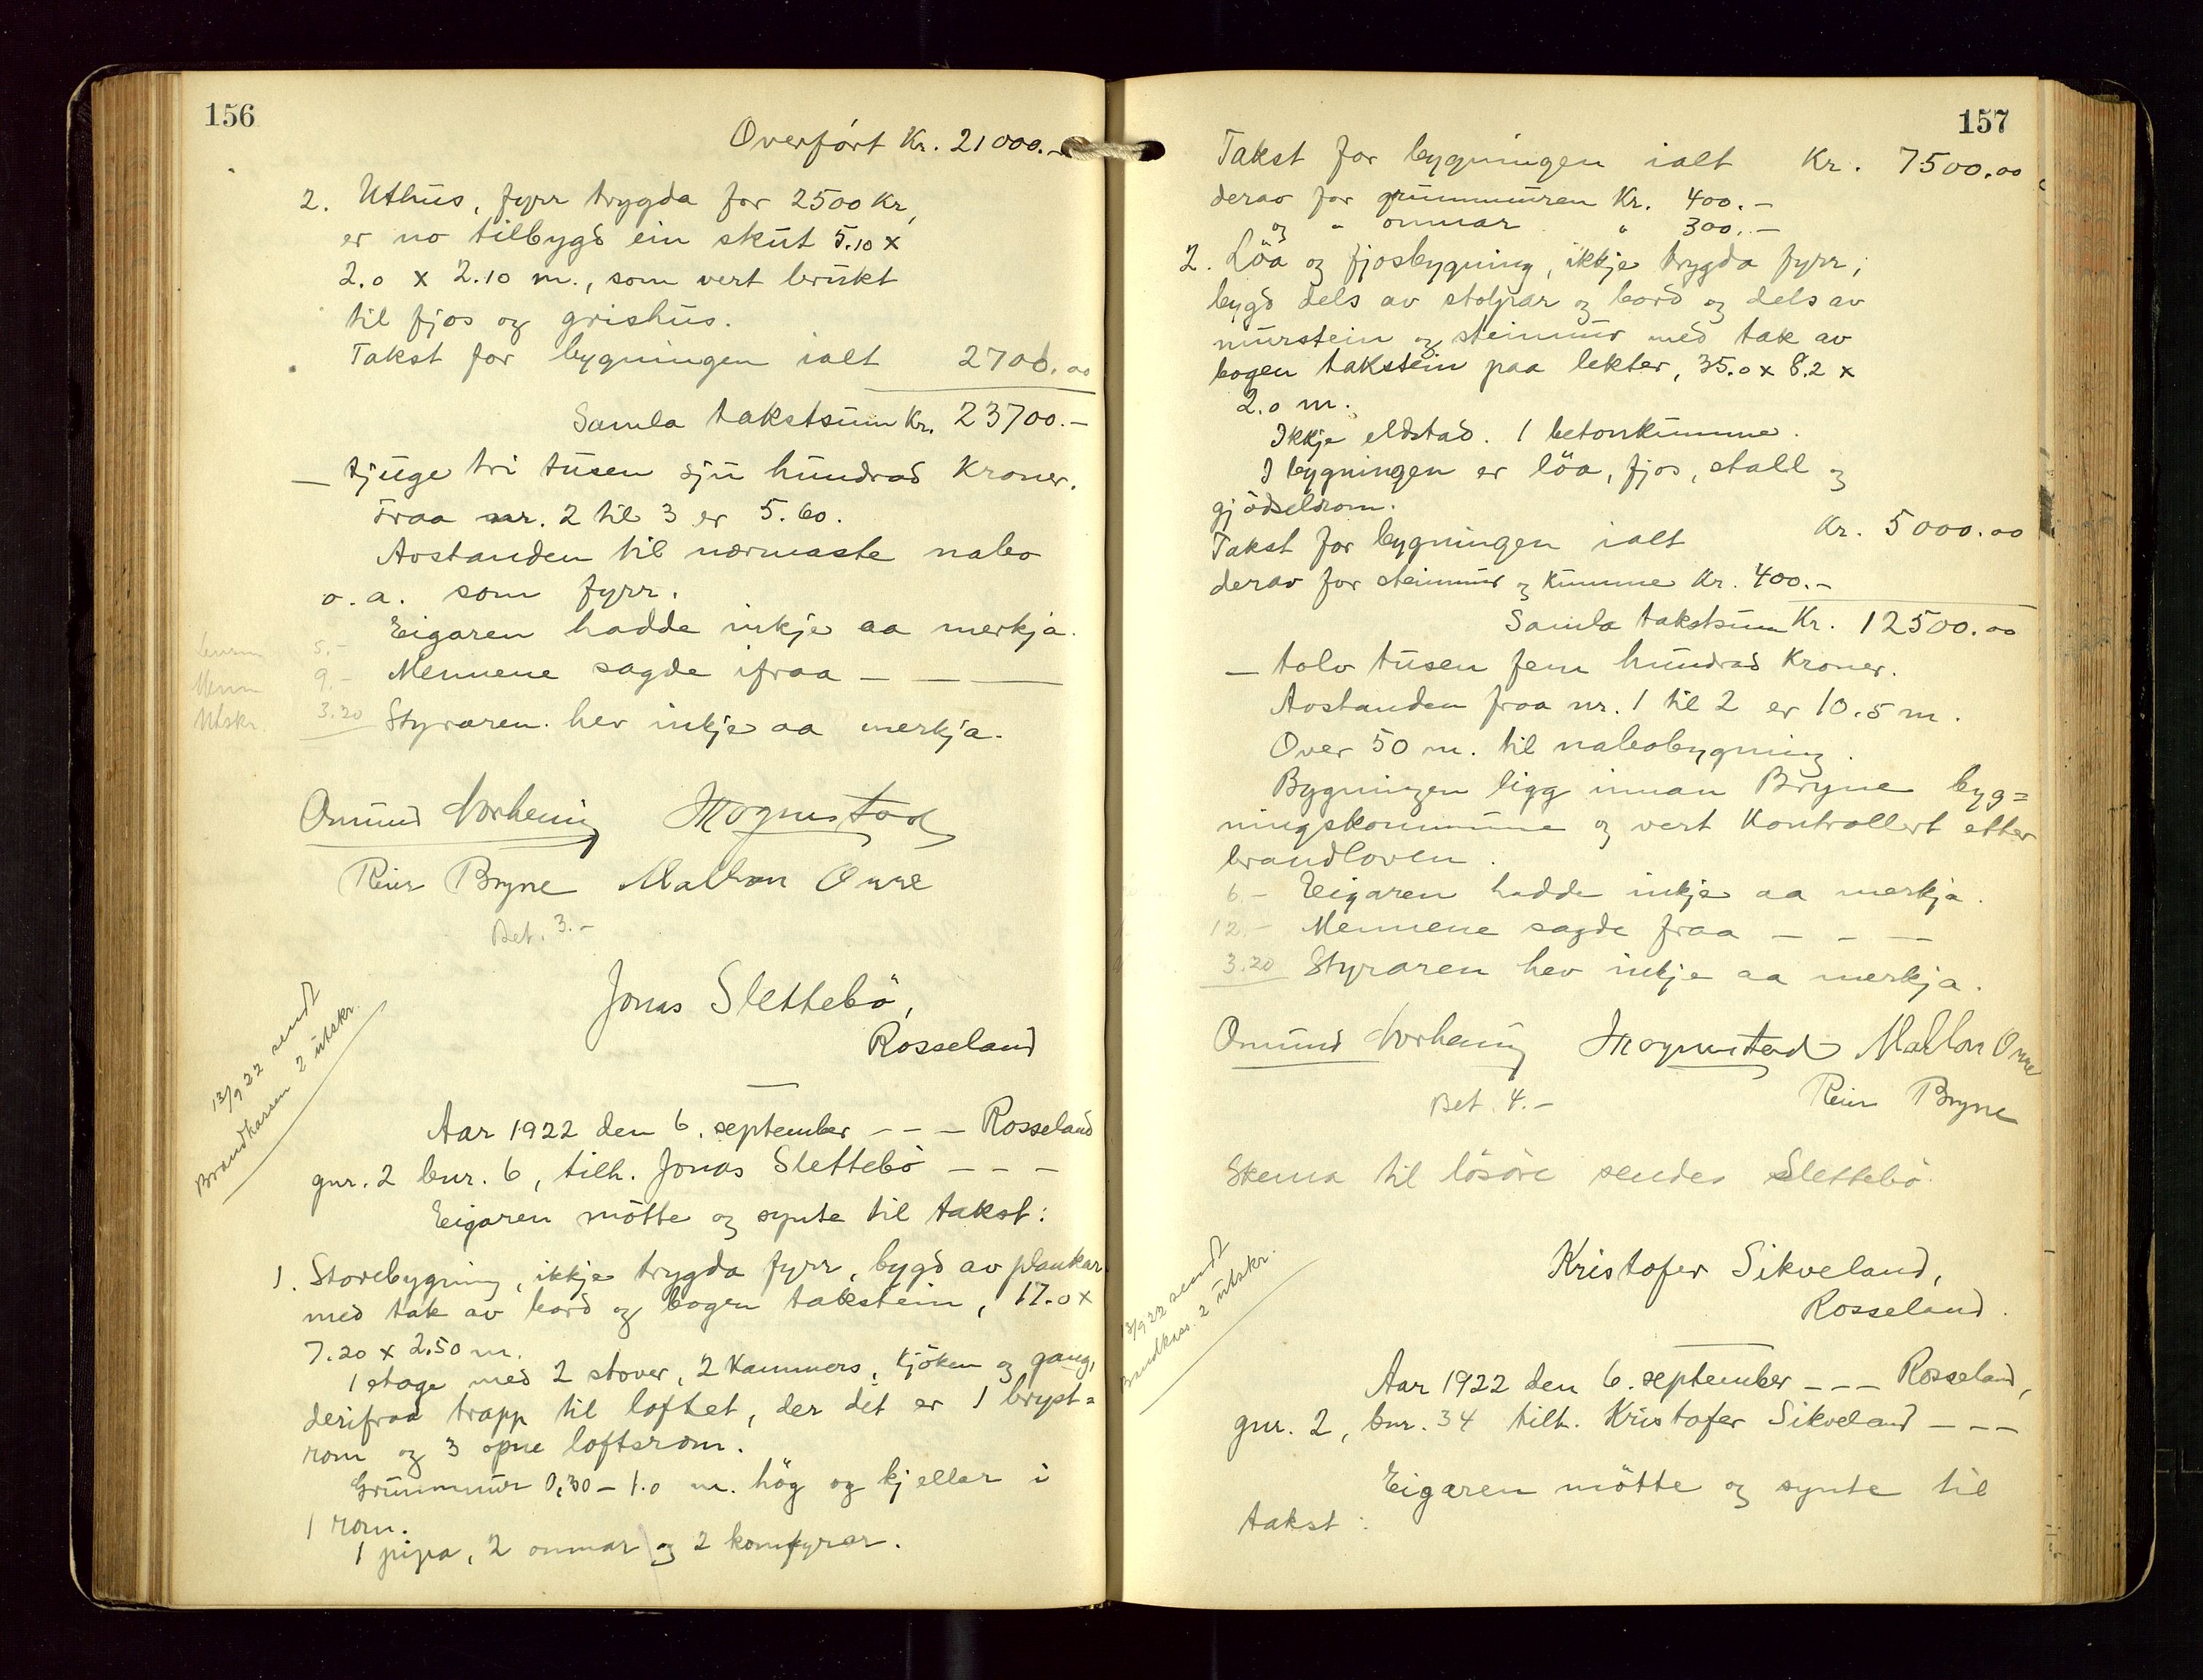 156
Overført Kr. 21000.-
2. Uthus, fyrr trygda for 2500 Kr,
er no tilbygd ein skut 5.10 x
2.0 x 2.10 m., som vert brukt
til fjos og grishus.
Takst for bygningen ialt 2700.00
Samla takstsum Kr. 23700.-
— tjuge tri tusen sju hundrad Kroner.
Fraa nr. 2 til 3 er 5.60.
Avstanden til nærmaste nabo
o.a. som fyrr.
Eigaren hadde inkje aa merkja.
5.- Mennene sagde ifraa — — —
Menn 9.-
Utskr. 3.20 Styraren hev inkje aa merkja.
Omund Norheim
Reier Bryne
Bet. 3.-
Jonas Slettebö,
Rosseland
13/9 22 sendt
Brandkassen 2 utskr.
Aar 1922 den 6. september - - - Rosseland
gnr. 2 bnr. 6, tilh. Jonas Slettebö - - -
Eigaren mötte og synte til takst:
1. Storebygning, ikkje trygda fyrr, bygd av plankar
med tak av bord og bogen takstein, 17.0 x
7.20 x 2.50 m.
1 etage med 2 stover, 2 kammers, kjöken og gang,
derifraa trapp til loftet, der det er 1 bryst=
rom og 3 opne loftsrom.
Grunnmur 0,30 - 1.0 m. hög og kjellar i
1 rom.
1 pipa, 2 omnar og 2 komfyrer.
157
Takst for bygningen ialt Kr. 7500.00
derav for grunnmuren Kr. 400.-
og " omnar " 300.-
2. Löa og fjosbygning, ikkje trygda fyrr,
bygd dels av stolpar og bord og dels av
murstein og steinmur med tak av
bogen takstein paa lekter, 35.0 x 8.2 x
2.0 m.
Ikkje eldstad. 1 betonkumme.
I bygningen er löa, fjos, stall og
gjödselrom.
Takst for bygningen ialt Kr. 5000.00
derav for steinmur og kumme Kr. 400.-
Samla takstsum Kr. 12500.00
— tolv tusen fem hundrad Kroner.
Avstanden fraa nr. 1 til 2 er 10.5 m.
Over 50 m. til nabobygning.
Bygningen ligg innan Bryne byg=
ningskommune og vert Kontrollert etter
brandloven.
6.- Eigaren hadde inkje aa merkja.
12.- Mennene sagde fraa — — —
3.20 Styraren hev inkje aa merkja.
Omund Norheim
Bet. 4.- Reier Bryne
Skema til lösöre sendes Slettebö
Kristofer Sikveland,
Rosseland.
13/9 22 sendt
Brandkas. 2 utskr.
Aar 1922 den 6. september - - - Rosseland,
gnr. 2, bnr. 34 tilh. Kristofer Sikveland - - -
Eigaren mötte og synte til
takst: